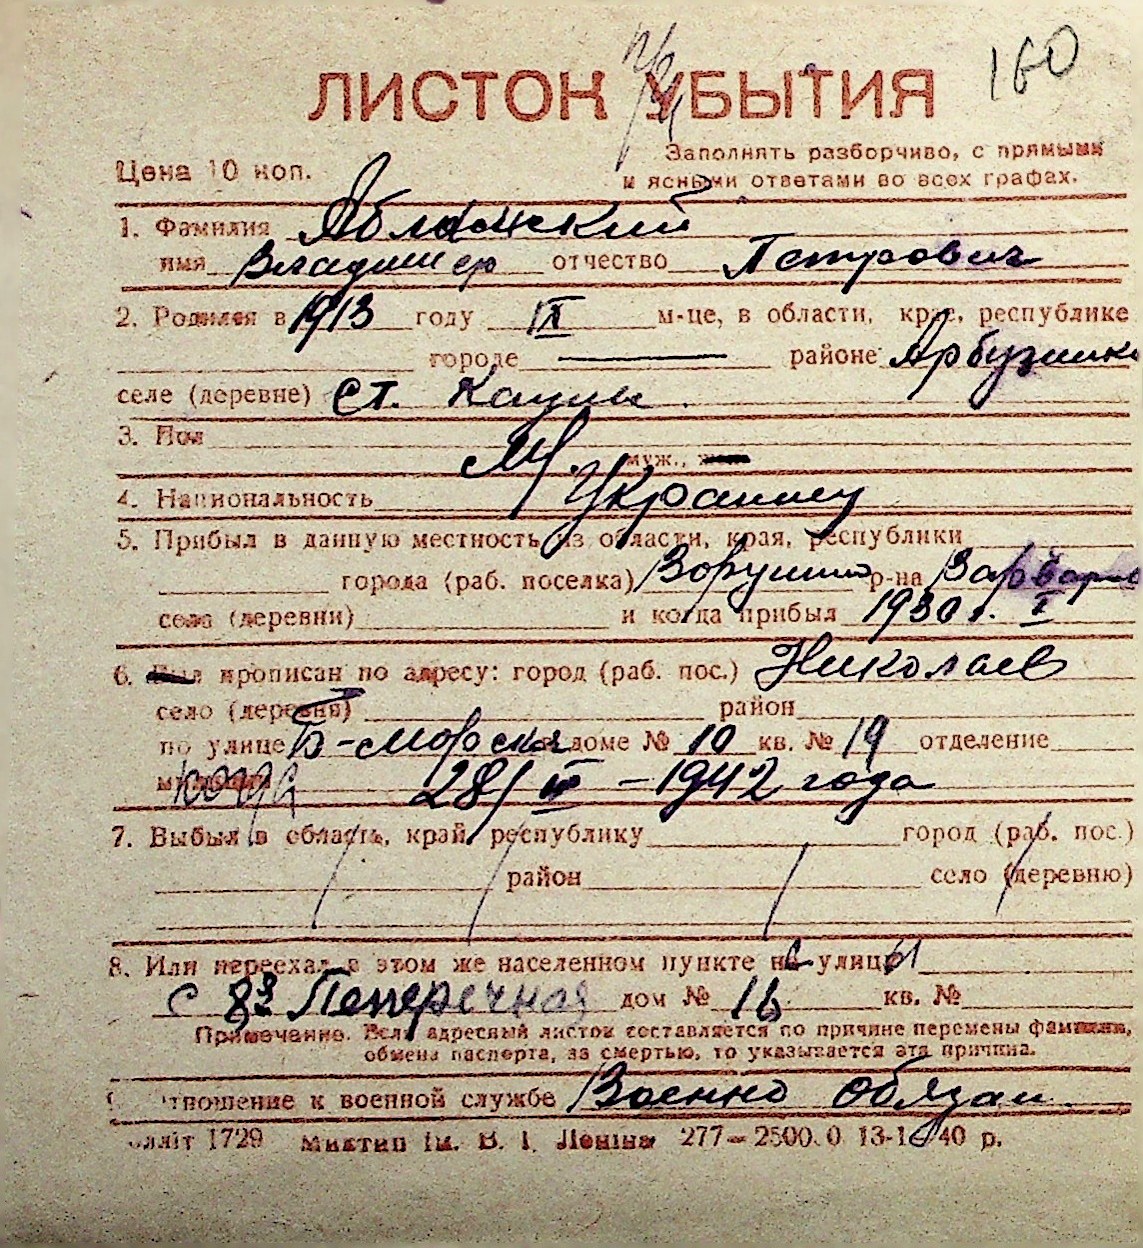 160
ЛИСТОК УБЫТИЯ
Цена 10 коп.
Заполнять разборчиво, с прямыми
и ясными ответами во всех графах.
1. Фамилия
имя Владимир отчество Петрович
2. Родился в 1913 году IX м-це, в области, крае, республике
городе — районе Арбузинк
селе (деревне) ст. Кацын
3. Пол М. муж.,
4. Национальность Украинец
5. Прибыл в данную местность из области, края, республики
города (раб. поселка) р-на
села (деревни) и когда прибыл 1930 г. I
6. Был прописан по адресу: город (раб. пос.) Николаев
село (деревня) район
по улице Б-морская доме № 10 кв. № 19 отделение
когда 28/ – 1942 года
7. Выбыл в область, край, республику город (раб. пос.)
район село (деревню)
8. Или переехал в этом же населенном пункте на улицы
с 8й Поперечная дом № 16 кв. №
Примечание. Если адресный листок составляется по причине перемены фамилии,
обмена паспорта, за смертью, то указывается эта причина.
отношение к военной службе Военно обязан
1729 Миктип ім. В. І. Леніна 277–2500.0 40 р.